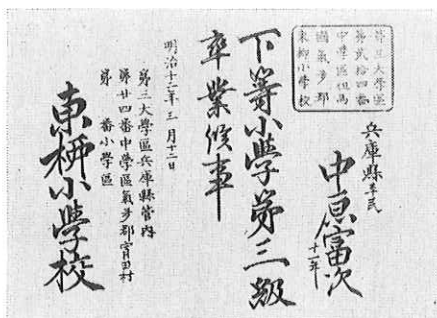 第三大學區
第貳拾四番
中學區但馬
國氣多郡
東栁小學校
兵庫縣平民
中原富次
十一年
下等小學第三級
卒業候事
明治十二年三月十二日
第三大學區兵庫縣管内
第廿四番中學區氣多郡宵田村
第 番小學區
東栁小學校